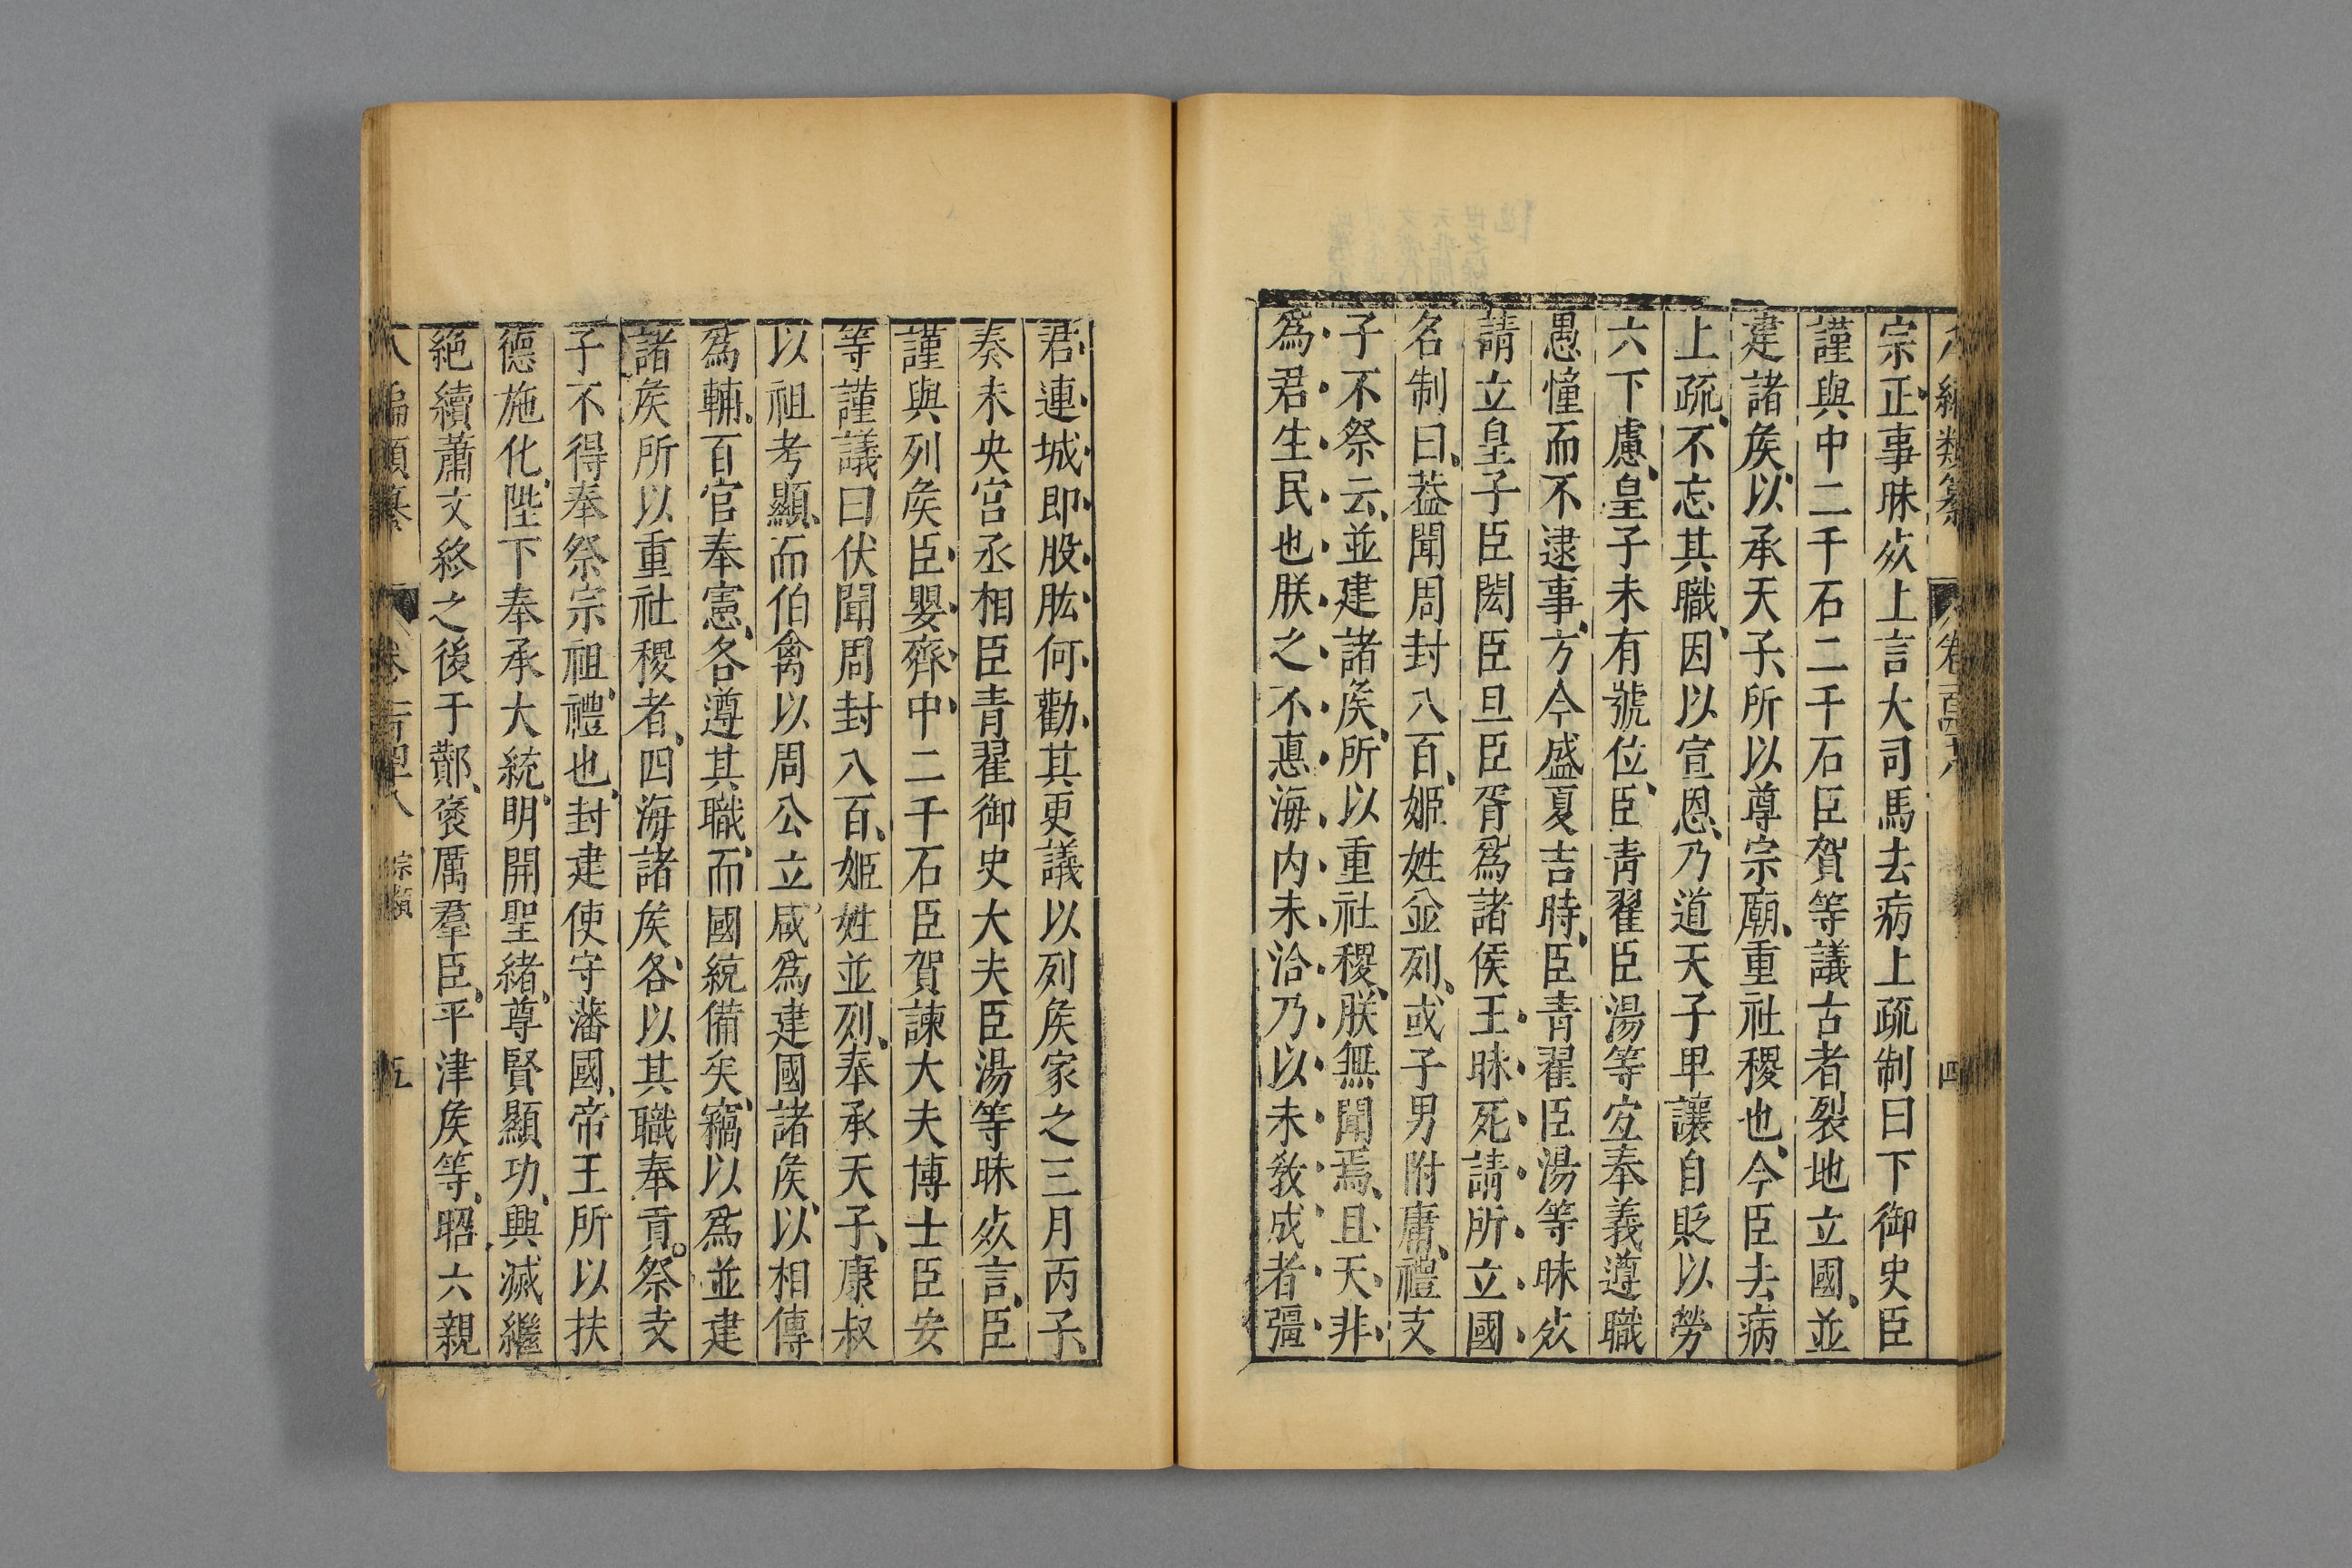 八編類纂 卷一百四十八 四
宗正事昧死上言大司馬去病上疏制曰下御史臣
謹與中二千石二千石臣賀等議古者裂地立國並
建諸矦以承天子所以尊宗廟重社稷也今臣去病
上疏不忘其職因以宣恩乃道天子卑讓自貶以勞
六下慮皇子未有號位臣青翟臣湯等宜奉義遵職
愚憧而不逮事方今盛夏吉時臣青翟臣湯等昧死
請立皇子臣閎臣旦臣胥爲諸侯王昧死請所立國
名制曰葢聞周封八百姬姓並列或子男附庸禮支
子不祭云並建諸矦所以重社稷朕無聞焉且天非
爲君生民也朕之不悳海内未洽乃以未敎成者彊
君連城即股肱何勸其更議以列矦家之三月丙子
奏未央宫丞相臣青翟御史大夫臣湯等昧死言臣
謹與列矦臣嬰齊中二千石臣賀諫大夫博士臣安
等謹議曰伏聞周封八百姬姓並列奉承天子康叔
以祖考顯而伯禽以周公立咸爲建國諸矦以相傳
爲輔百官奉憲各遵其職而國統備矣竊以爲並建
諸矦所以重社稷者四海諸矦各以其職奉貢祭支
子不得奉祭宗祖禮也封建使守藩國帝王所以扶
德施化陛下奉承大統明開聖緒尊賢顯功興滅繼
絶續蕭文終之後于酇褒厲羣臣平津矦等昭六親
八編類纂 卷一百四十八 宗類 五